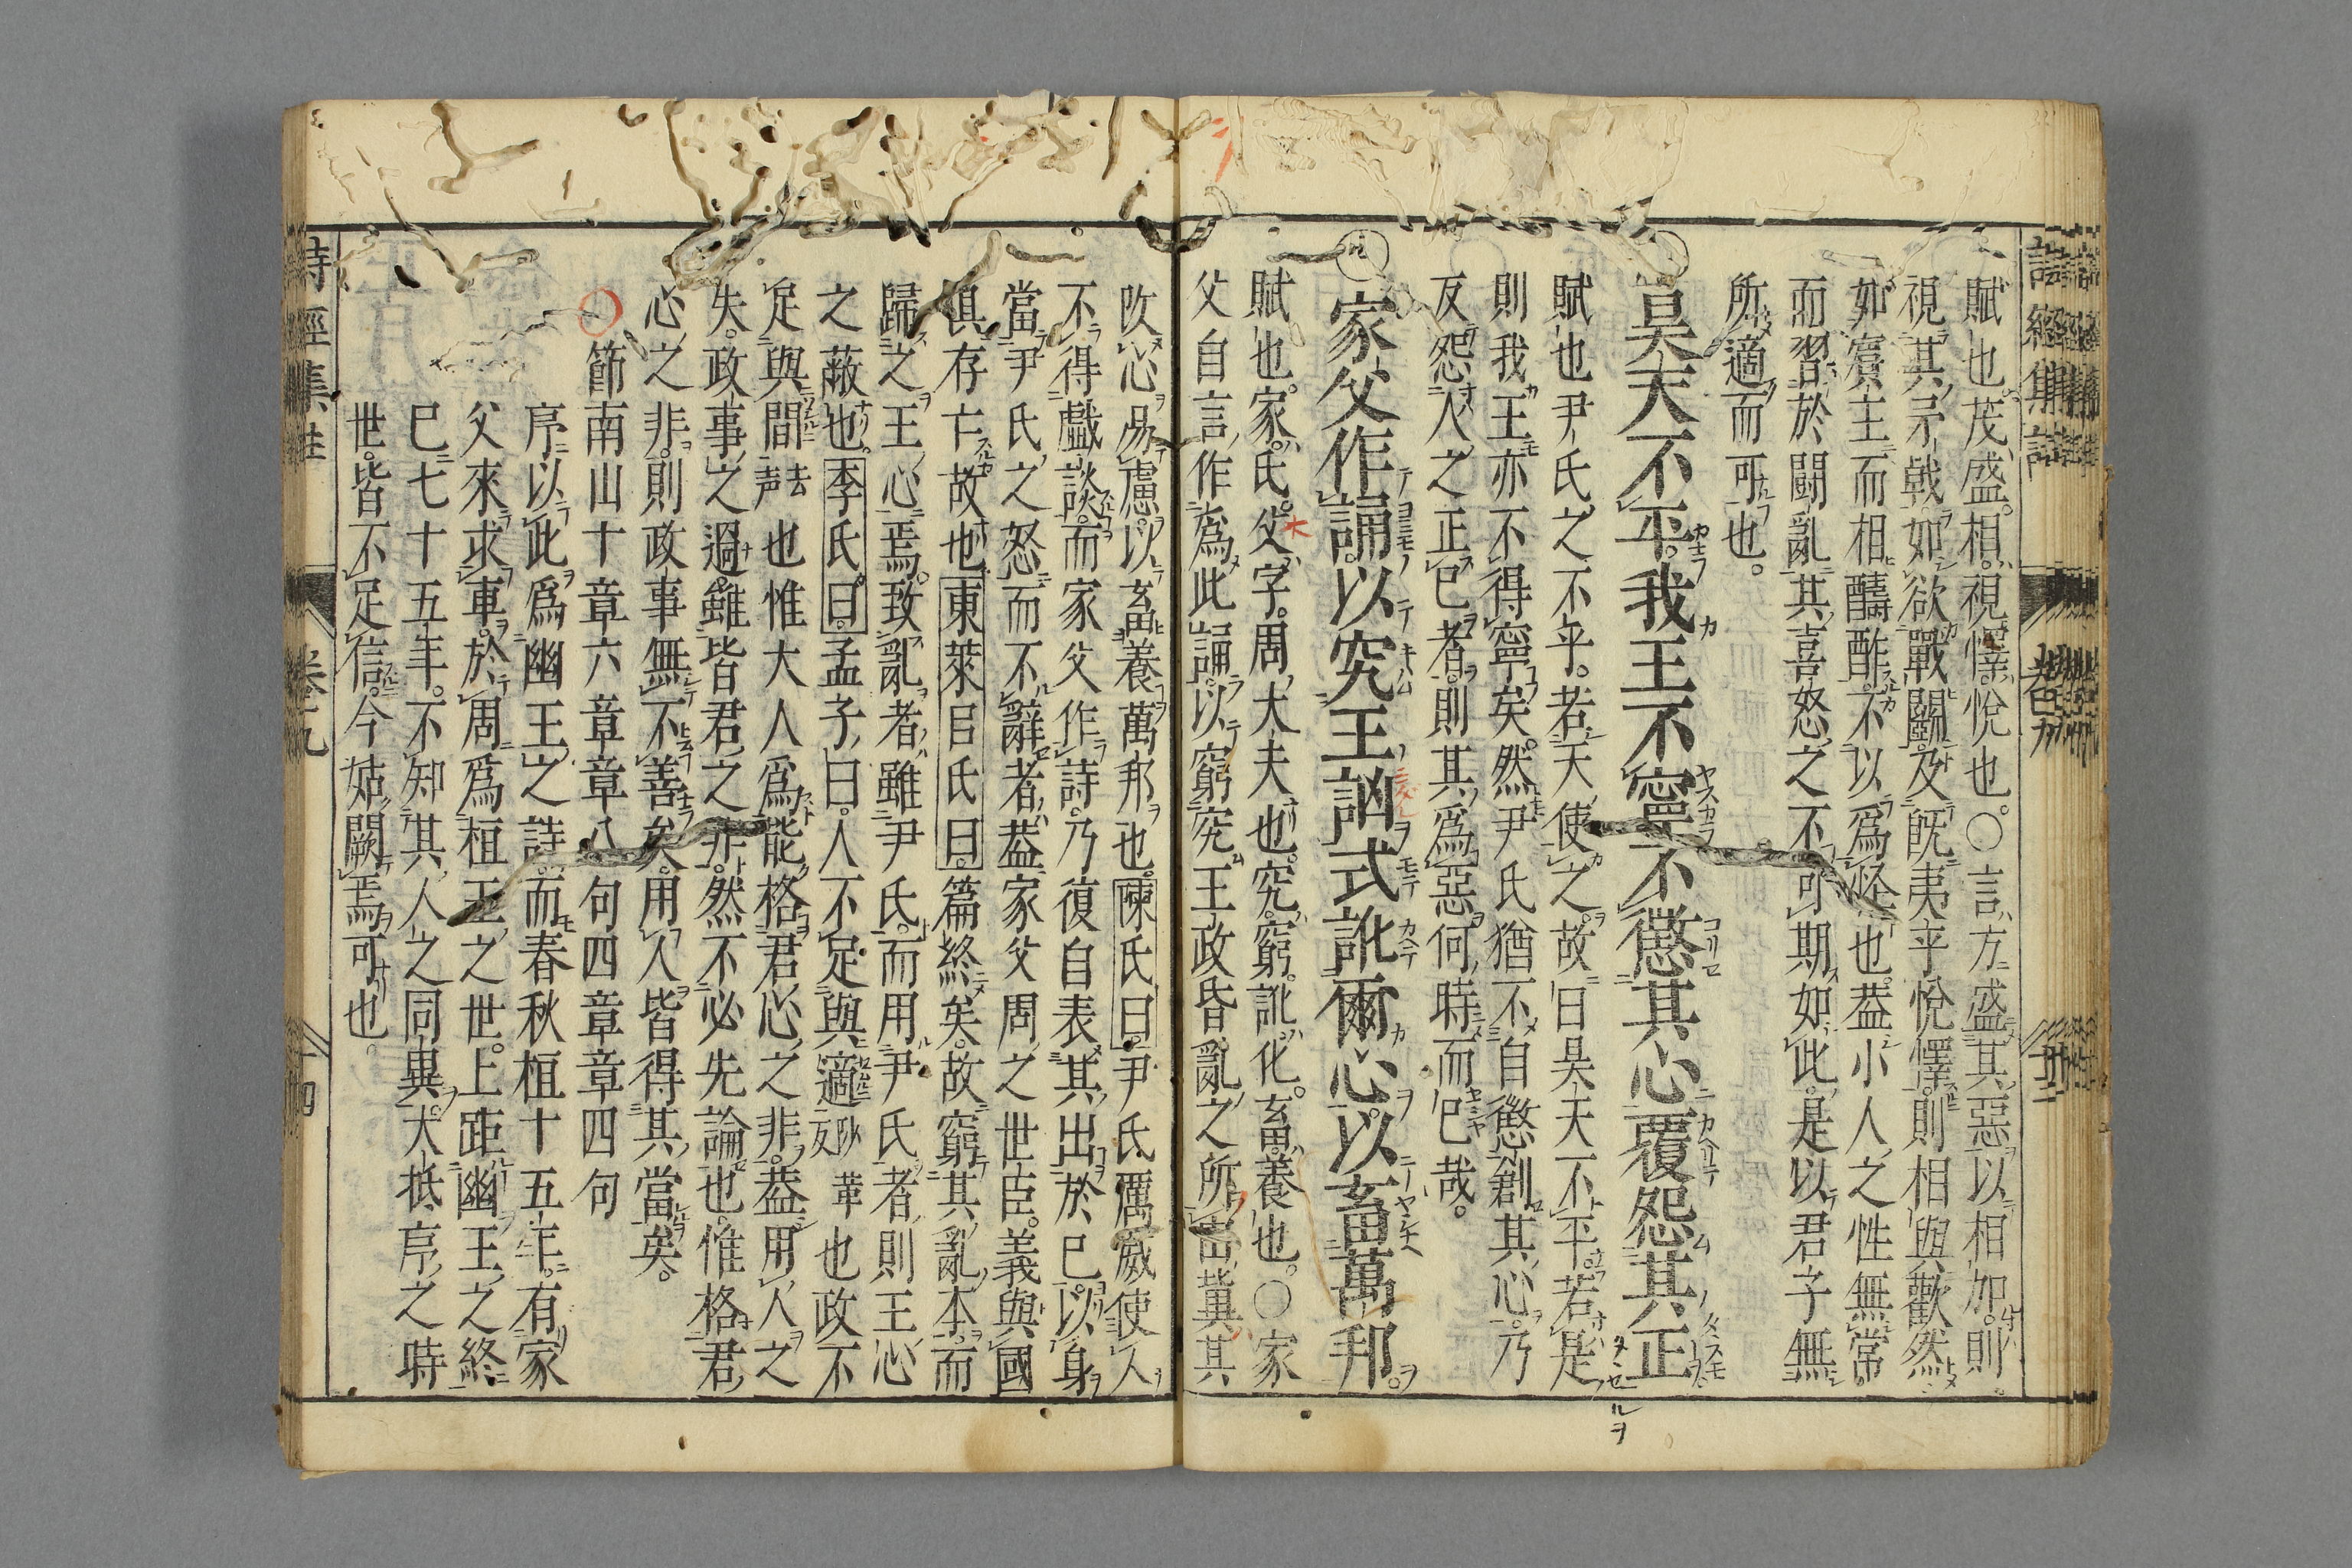 賦也。茂盛。相。視。懌。悅也。○言方盛其惡以相加。則
視其矛戟。如欲戰鬬。及旣夷平悅懌。則相與歡然
如賓主而相醻酢。不以爲怪也。葢小人之性無常。
而習於鬪亂。其喜怒之不可期如此。是以君子無
所適而可也。
昊天不平。我王不寧。不懲其心。覆怨其正
賦也尹氏之不平。若天使之。故曰昊天不平。若是
則我王亦不得寧矣。然尹氏猶不自懲創其心。乃
反怨人之正己者。則其爲惡何時而已哉。
家父作誦。以究王訩。式訛爾心。以畜萬邦。
賦也。家。氏。父。字。周大夫也。究。窮。訛。化。畜。養也。○家
父自言作爲此誦。以窮究王政昏亂之所由。冀其
改心易慮。以畜養萬邦也。陳氏曰。尹氏厲威使人
不得戲談。而家父作詩。乃復自表其出於己。以身
當尹氏之怒。而不辭者。葢家父周之世臣。義與國
俱存亡故也東萊呂氏曰。篇終矣。故窮其亂本。而
歸之王心焉。致亂者雖尹氏。而用尹氏者。則王心
之蔽也。李氏曰。孟子曰。人不足與適 也政不
足與間去声也惟大人爲能格君心之非。葢用人之
失。政事之過。雖皆君之非。然不必先論也。惟格君
心之非。則政事無不善矣。用人皆得其當矣。
節南山十章六章章八句四章章四句
序以此爲幽王之詩。而春秋桓十五年。有家
父來求車。於周爲桓王之世。上距幽王之終
已七十五年。不知其人之同異。大抵序之時
世。皆不足信。今姑闕焉可也。
詩經集註
卷五九
十四